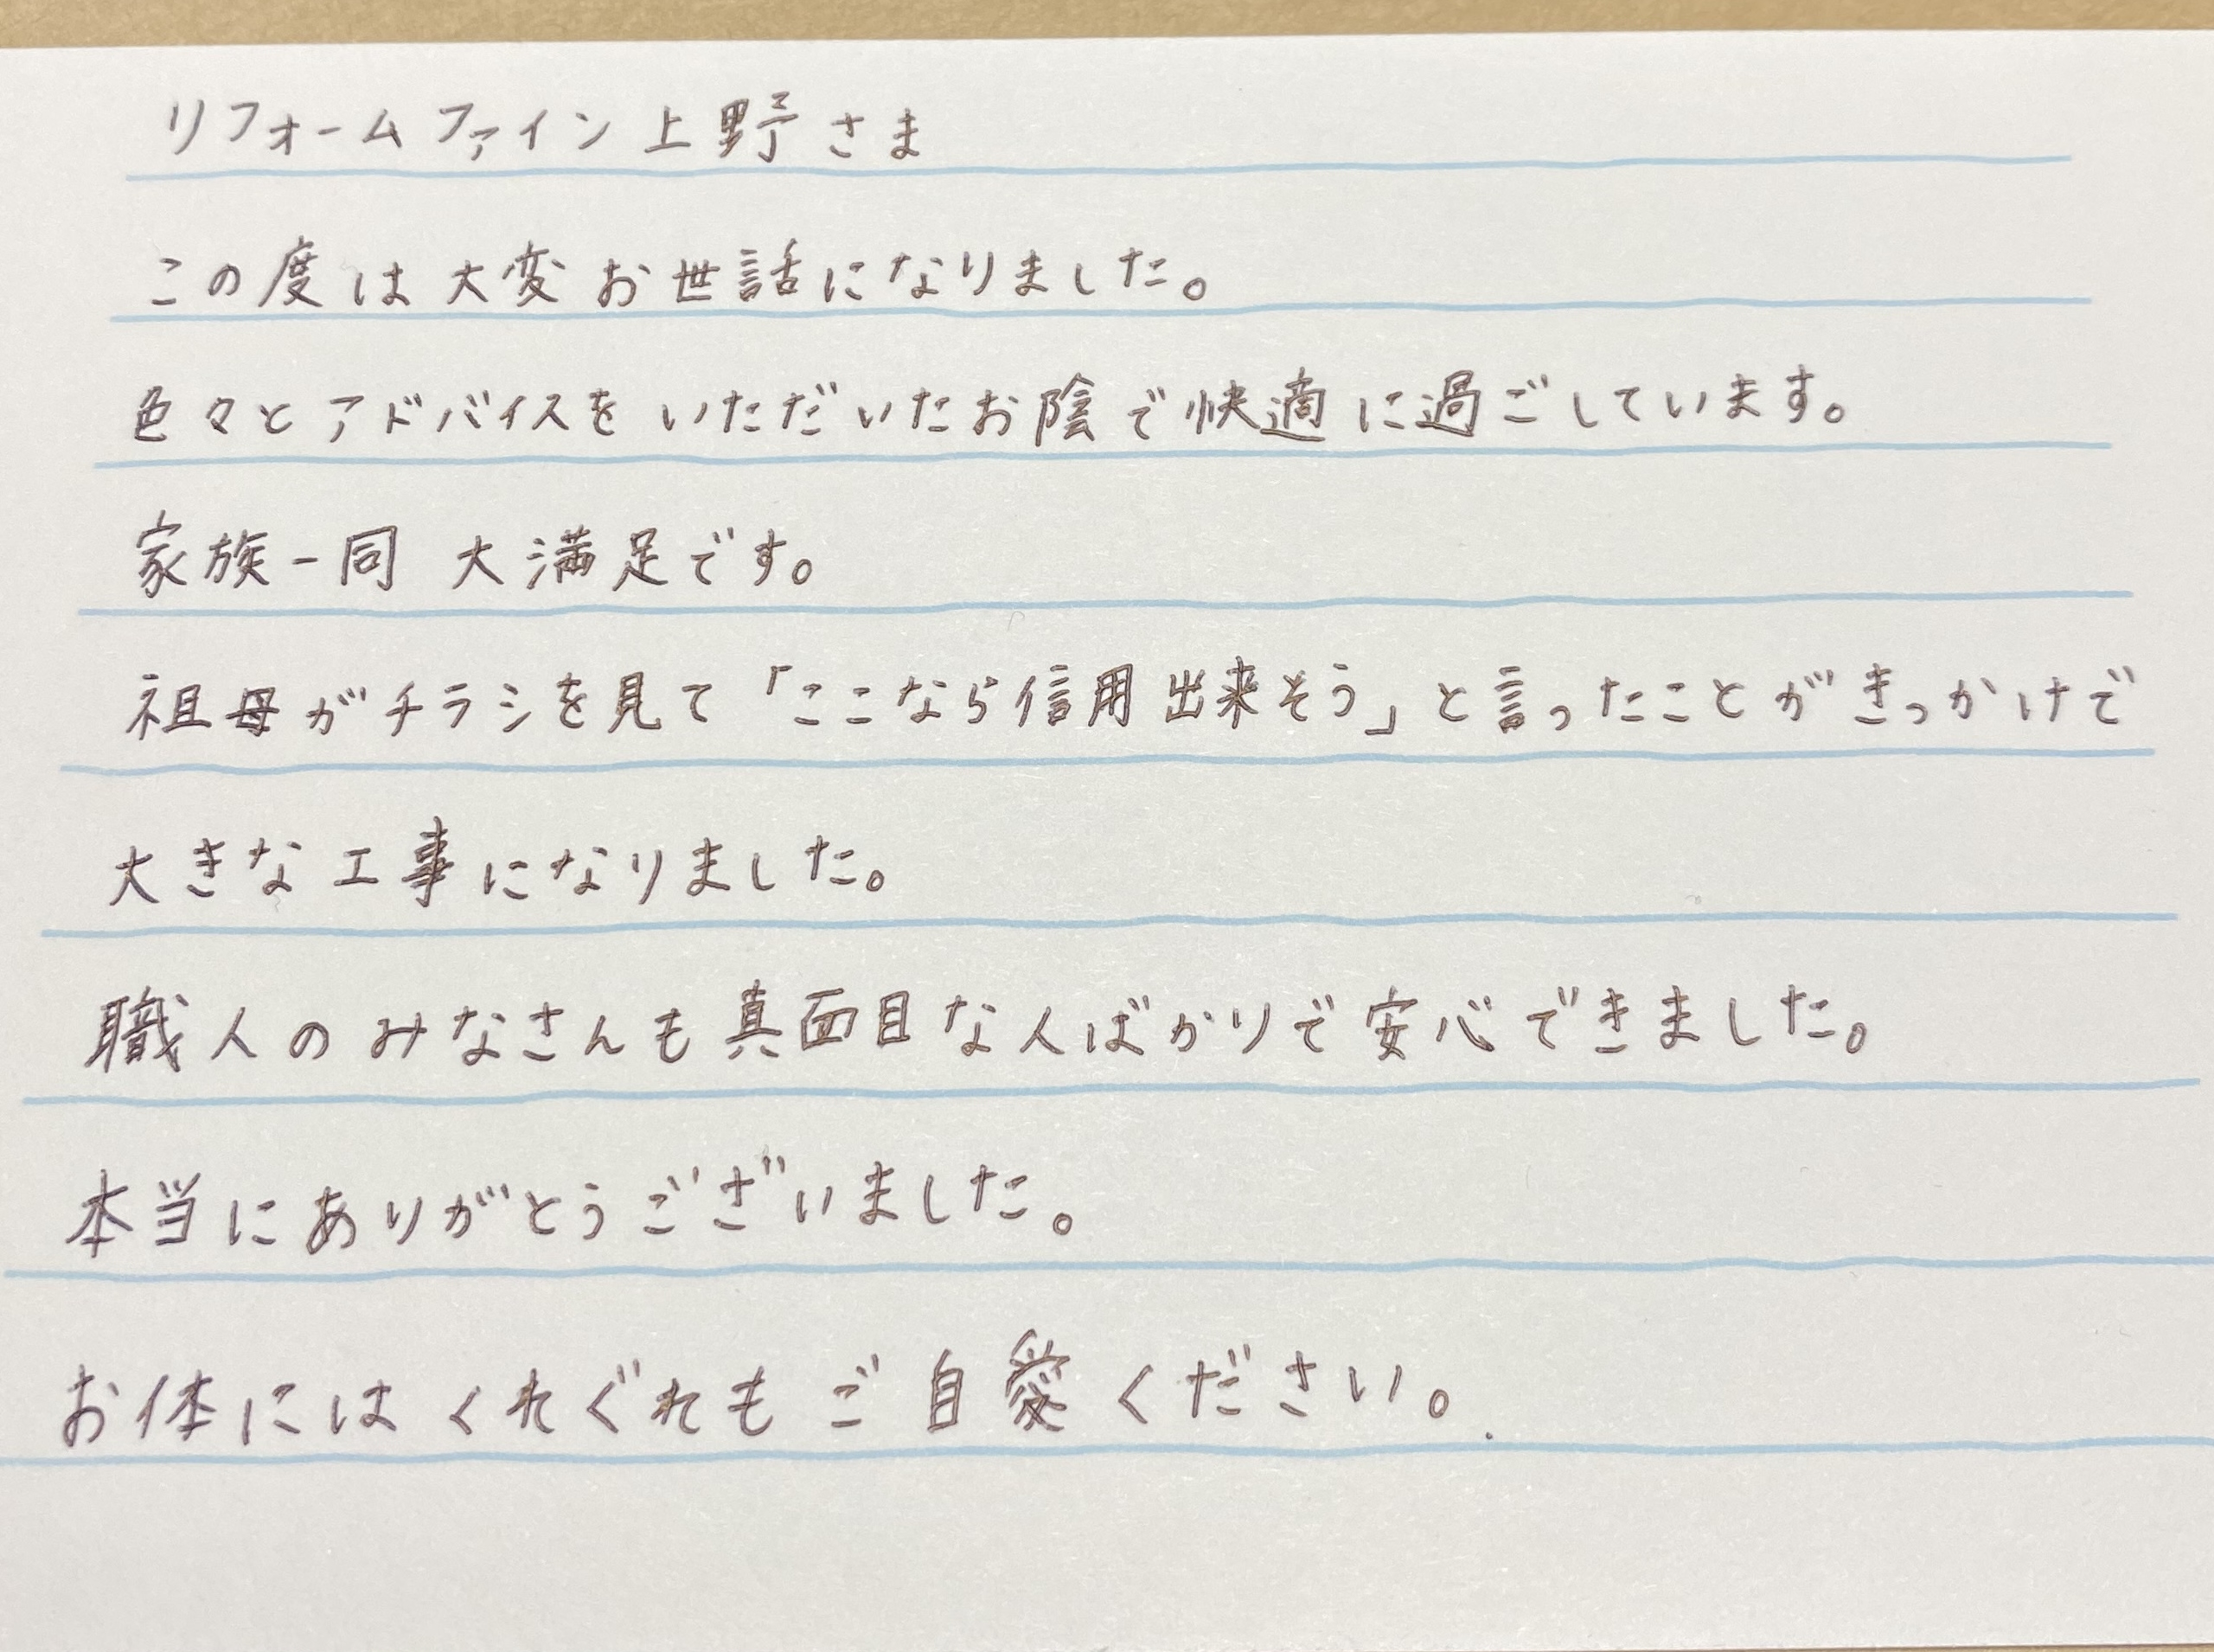 リフォームファイン上野さま
この度は大変お世話になりました。
色々とアドバイスをいただいたお陰で快適に過ごしています。
家族一同 大満足です。
祖母がチラシを見て「ここなら信用出来そう」と言ったことがきっかけで
大きな工事になりました。
職人のみなさんも真面目な人ばかりで安心できました。
本当にありがとうございました。
お体にはくれぐれもご自愛ください。